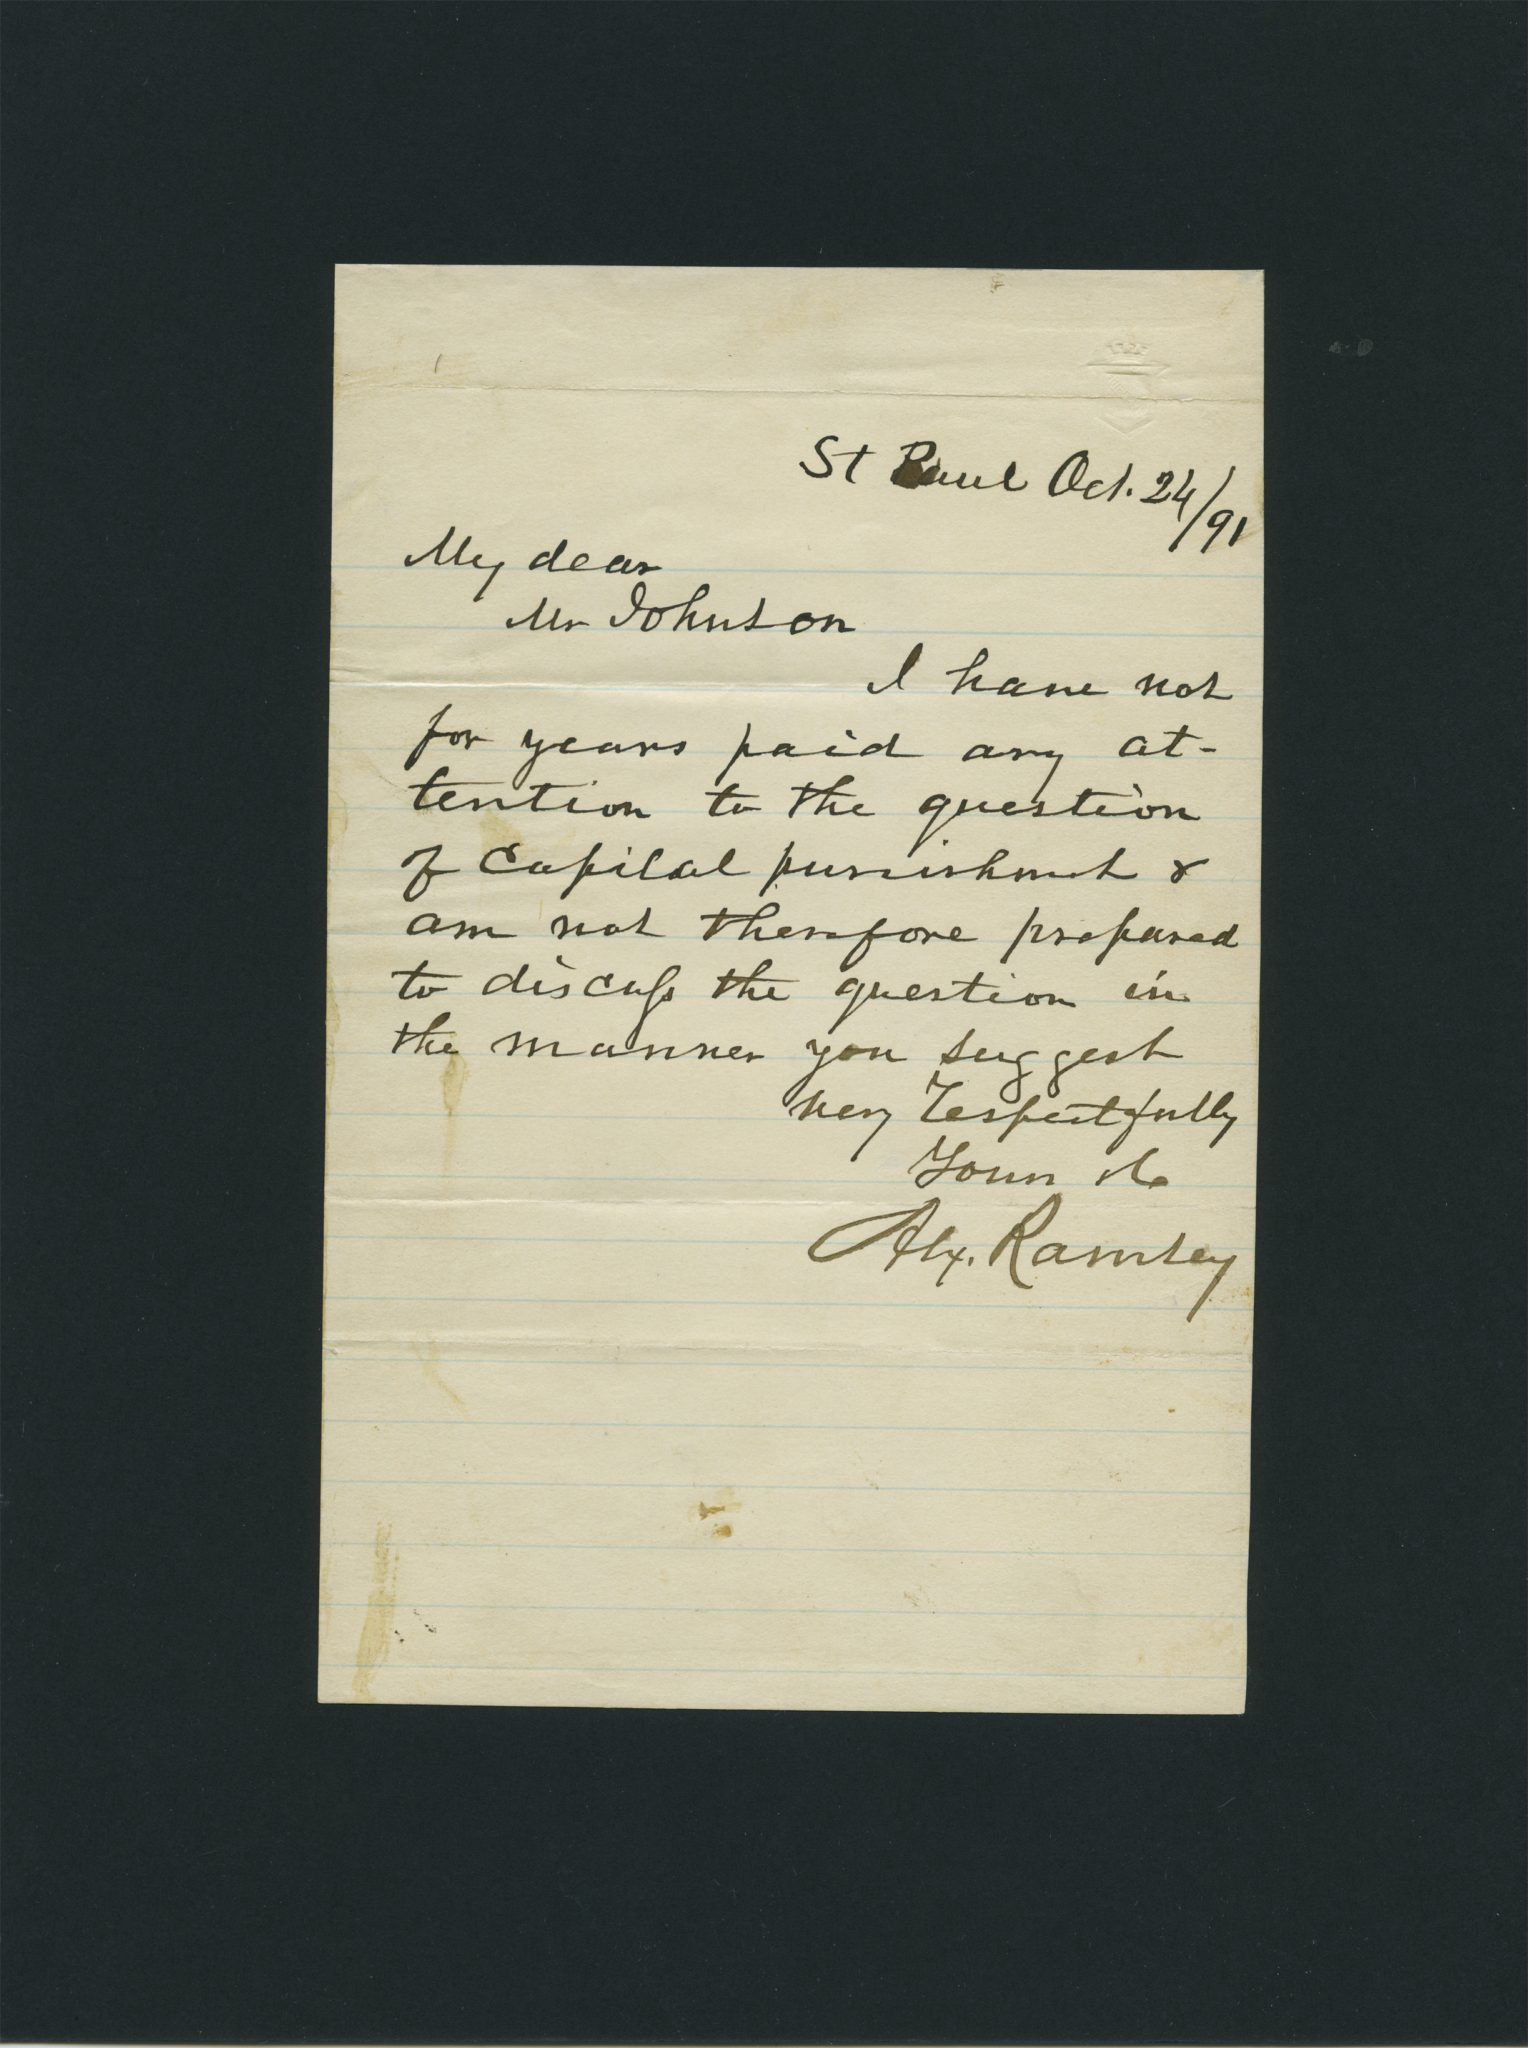 St Paul Oct. 24/91
My dear
Mr Johnson
I have not
for years paid any at-
tention to the question
of Capital punishment &
am not therefore prepared
to discuss the question in
the manner you suggest
very respectfully
Yours &c
Alx. Ramsey